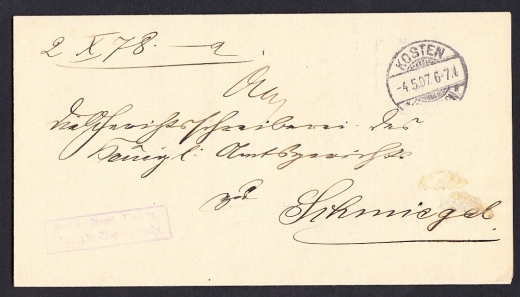 2 X 78. a.
KOSTEN
-4.5.07.6-7.N
An
die Gerichtsschreiberei des
Königl. Amtsgerichts
zu
Schmiegel